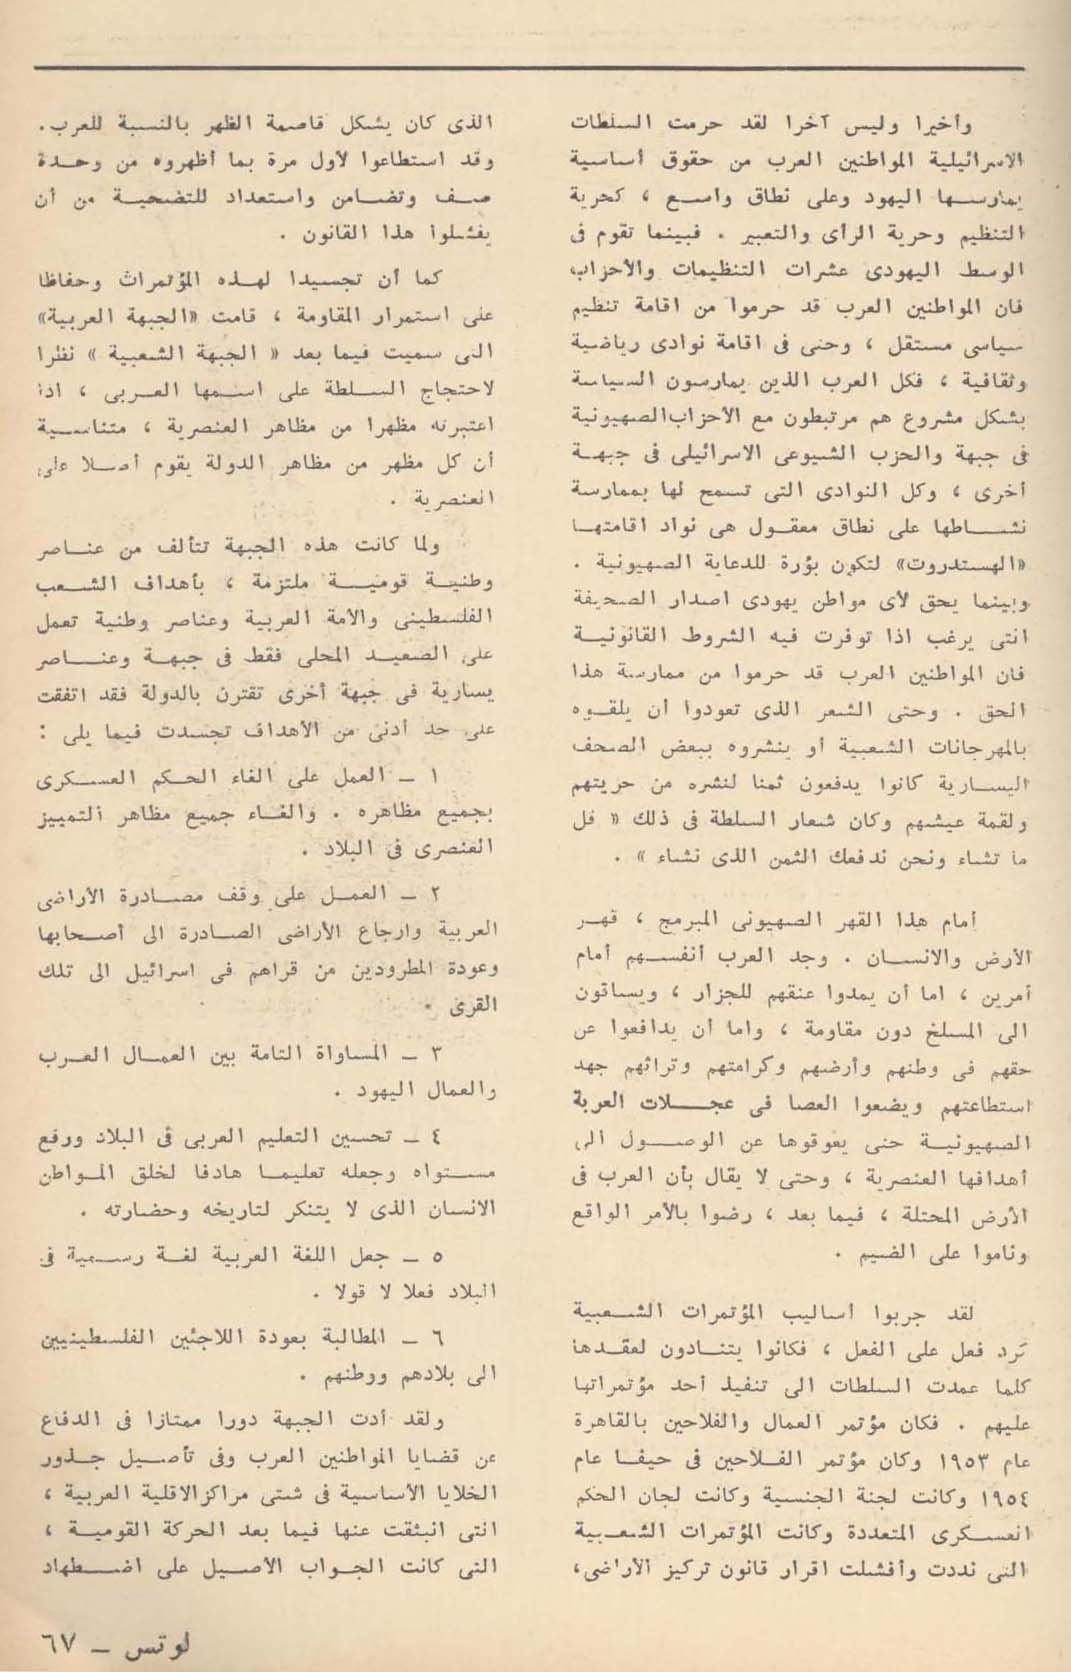 وأخيرا وليس آخرا لقد حرمت السلطات
الاسرائيلية المواطنين العرب من حقوق أساسية
يمارسها اليهود وعلى نطاق واسع ، كحرية
التنظيم وحرية الرأى والتعبير . فبينما تقوم فى
الوسط اليهودى عشرات التنظيمات والأحزاب،
فان المواطنين العرب قد حرموا من اقامة تنظيم
سياسى مستقل ، وحتى فى اقامة نوادى رياضية
وثقافية ، فكل العرب الذين يمارسون السياسة
بشكل مشروع هم مرتبطون مع الأحزاب الصهيونية
فى جبهة والحزب الشيوعى الاسرائيلى فى جبهة
أخرى ، وكل النوادى التى تسمح لها بممارسة
نشاطها على نطاق معقول هى نواد اقامتها
«الهستدروت» لتكون بؤرة للدعاية الصهيونية .
وبينما يحق لأى مواطن يهودى اصدار الصحيفة
التى يرغب اذا توفرت فيه الشروط القانونية
فان المواطنين العرب قد حرموا من ممارسة هذا
الحق . وحتى الشعر الذى تعودوا أن يلقوه
بالمهرجانات الشعبية أو ينشروه ببعض الصحف
اليسارية كانوا يدفعون ثمنا لنشره من حريتهم
ولقمة عيشهم وكان شعار السلطة فى ذلك « قل
ما تشاء ونحن ندفعك الثمن الذى نشاء » .
أمام هذا القهر الصهيونى المبرمج ، قهر
الأرض والانسان . وجد العرب أنفسهم أمام
أمرين ، اما أن يمدوا عنقهم للجزار ، ويساقون
الى المسلخ دون مقاومة ، واما أن يدافعوا عن
حقهم فى وطنهم وأرضهم وكرامتهم وتراثهم جهد
استطاعتهم ويضعوا العصا فى عجلات العربة
الصهيونية حتى يعوقوها عن الوصول الى
أهدافها العنصرية ، وحتى لا يقال بأن العرب فى
الأرض المحتلة ، فيما بعد ، رضوا بالأمر الواقع
وناموا على الضيم .
لقد جربوا أساليب المؤتمرات الشعبية
كرد فعل على الفعل ، فكانوا يتنادون لعقدها
كلما عمدت السلطات الى تنفيذ أحد مؤتمراتها
عليهم . فكان مؤتمر العمال والفلاحين بالقاهرة
عام ١٩٥٣ وكان مؤتمر الفلاحين فى حيفا عام
١٩٥٤ وكانت لجنة الجنسية وكانت لجان الحكم
العسكرى المتعددة وكانت المؤتمرات الشعبية
التى نددت وأفشلت اقرار قانون تركيز الأراضى،
الذى كان يشكل قاصمة الظهر بالنسبة للعرب.
وقد استطاعوا لأول مرة بما أظهروه من وحدة
صف وتضامن واستعداد للتضحية من أن
يفشلوا هذا القانون .
كما أن تجسيدا لهذه المؤتمرات وحفاظا
على استمرار المقاومة ، قامت «الجبهة العربية»
التى سميت فيما بعد « الجبهة الشعبية » نظرا
لاحتجاج السلطة على اسمها العربى ، اذ
اعتبرته مظهرا من مظاهر العنصرية ، متناسية
أن كل مظهر من مظاهر الدولة يقوم أصلا على
العنصرية .
ولما كانت هذه الجبهة تتألف من عناصر
وطنية قومية ملتزمة ، بأهداف الشعب
الفلسطينى والأمة العربية وعناصر وطنية تعمل
على الصعيد المحلى فقط فى جبهة وعناصر
يسارية فى جبهة أخرى تقترن بالدولة فقد اتفقت
على حد أدنى من الأهداف تجسدت فيما يلى :
١ - العمل على الغاء الحكم العسكرى
بجميع مظاهره . والغاء جميع مظاهر التمييز
العنصرى فى البلاد .
٢ - العمل على وقف مصادرة الأراضى
العربية وارجاع الأراضى الصادرة الى أصحابها
وعودة المطرودين من قراهم فى اسرائيل الى تلك
القرى .
٣ - المساواة التامة بين العمال العرب
والعمال اليهود .
٤ - تحسين التعليم العربى فى البلاد ورفع
مستواه وجعله تعليما هادفا لخلق المواطن
الانسان الذى لا يتنكر لتاريخه وحضارته .
٥ - جعل اللغة العربية لغة رسمية فى
البلاد فعلا لا قولا .
٦ - المطالبة بعودة اللاجئين الفلسطينيين
الى بلادهم ووطنهم .
ولقد أدت الجبهة دورا ممتازا فى الدفاع
عن قضايا المواطنين العرب وفى تأصيل جذور
الخلايا الأساسية فى شتى مراكز الاقلية العربية ،
التى انبثقت عنها فيما بعد الحركة القومية ،
التى كانت الجواب الأصيل على اضطهاد
لوتس - ٦٧